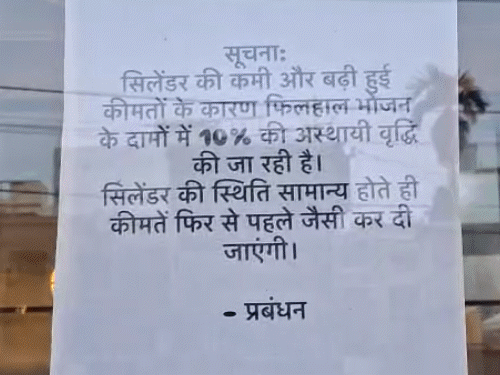 सूचना:
सिलेंडर की कमी और बढ़ी हुई
कीमतों के कारण फिलहाल भोजन
के दामों में 10% की अस्थायी वृद्धि
की जा रही है।
सिलेंडर की स्थिति सामान्य होते ही
कीमतें फिर से पहले जैसी कर दी
जाएंगी।
- प्रबंधन